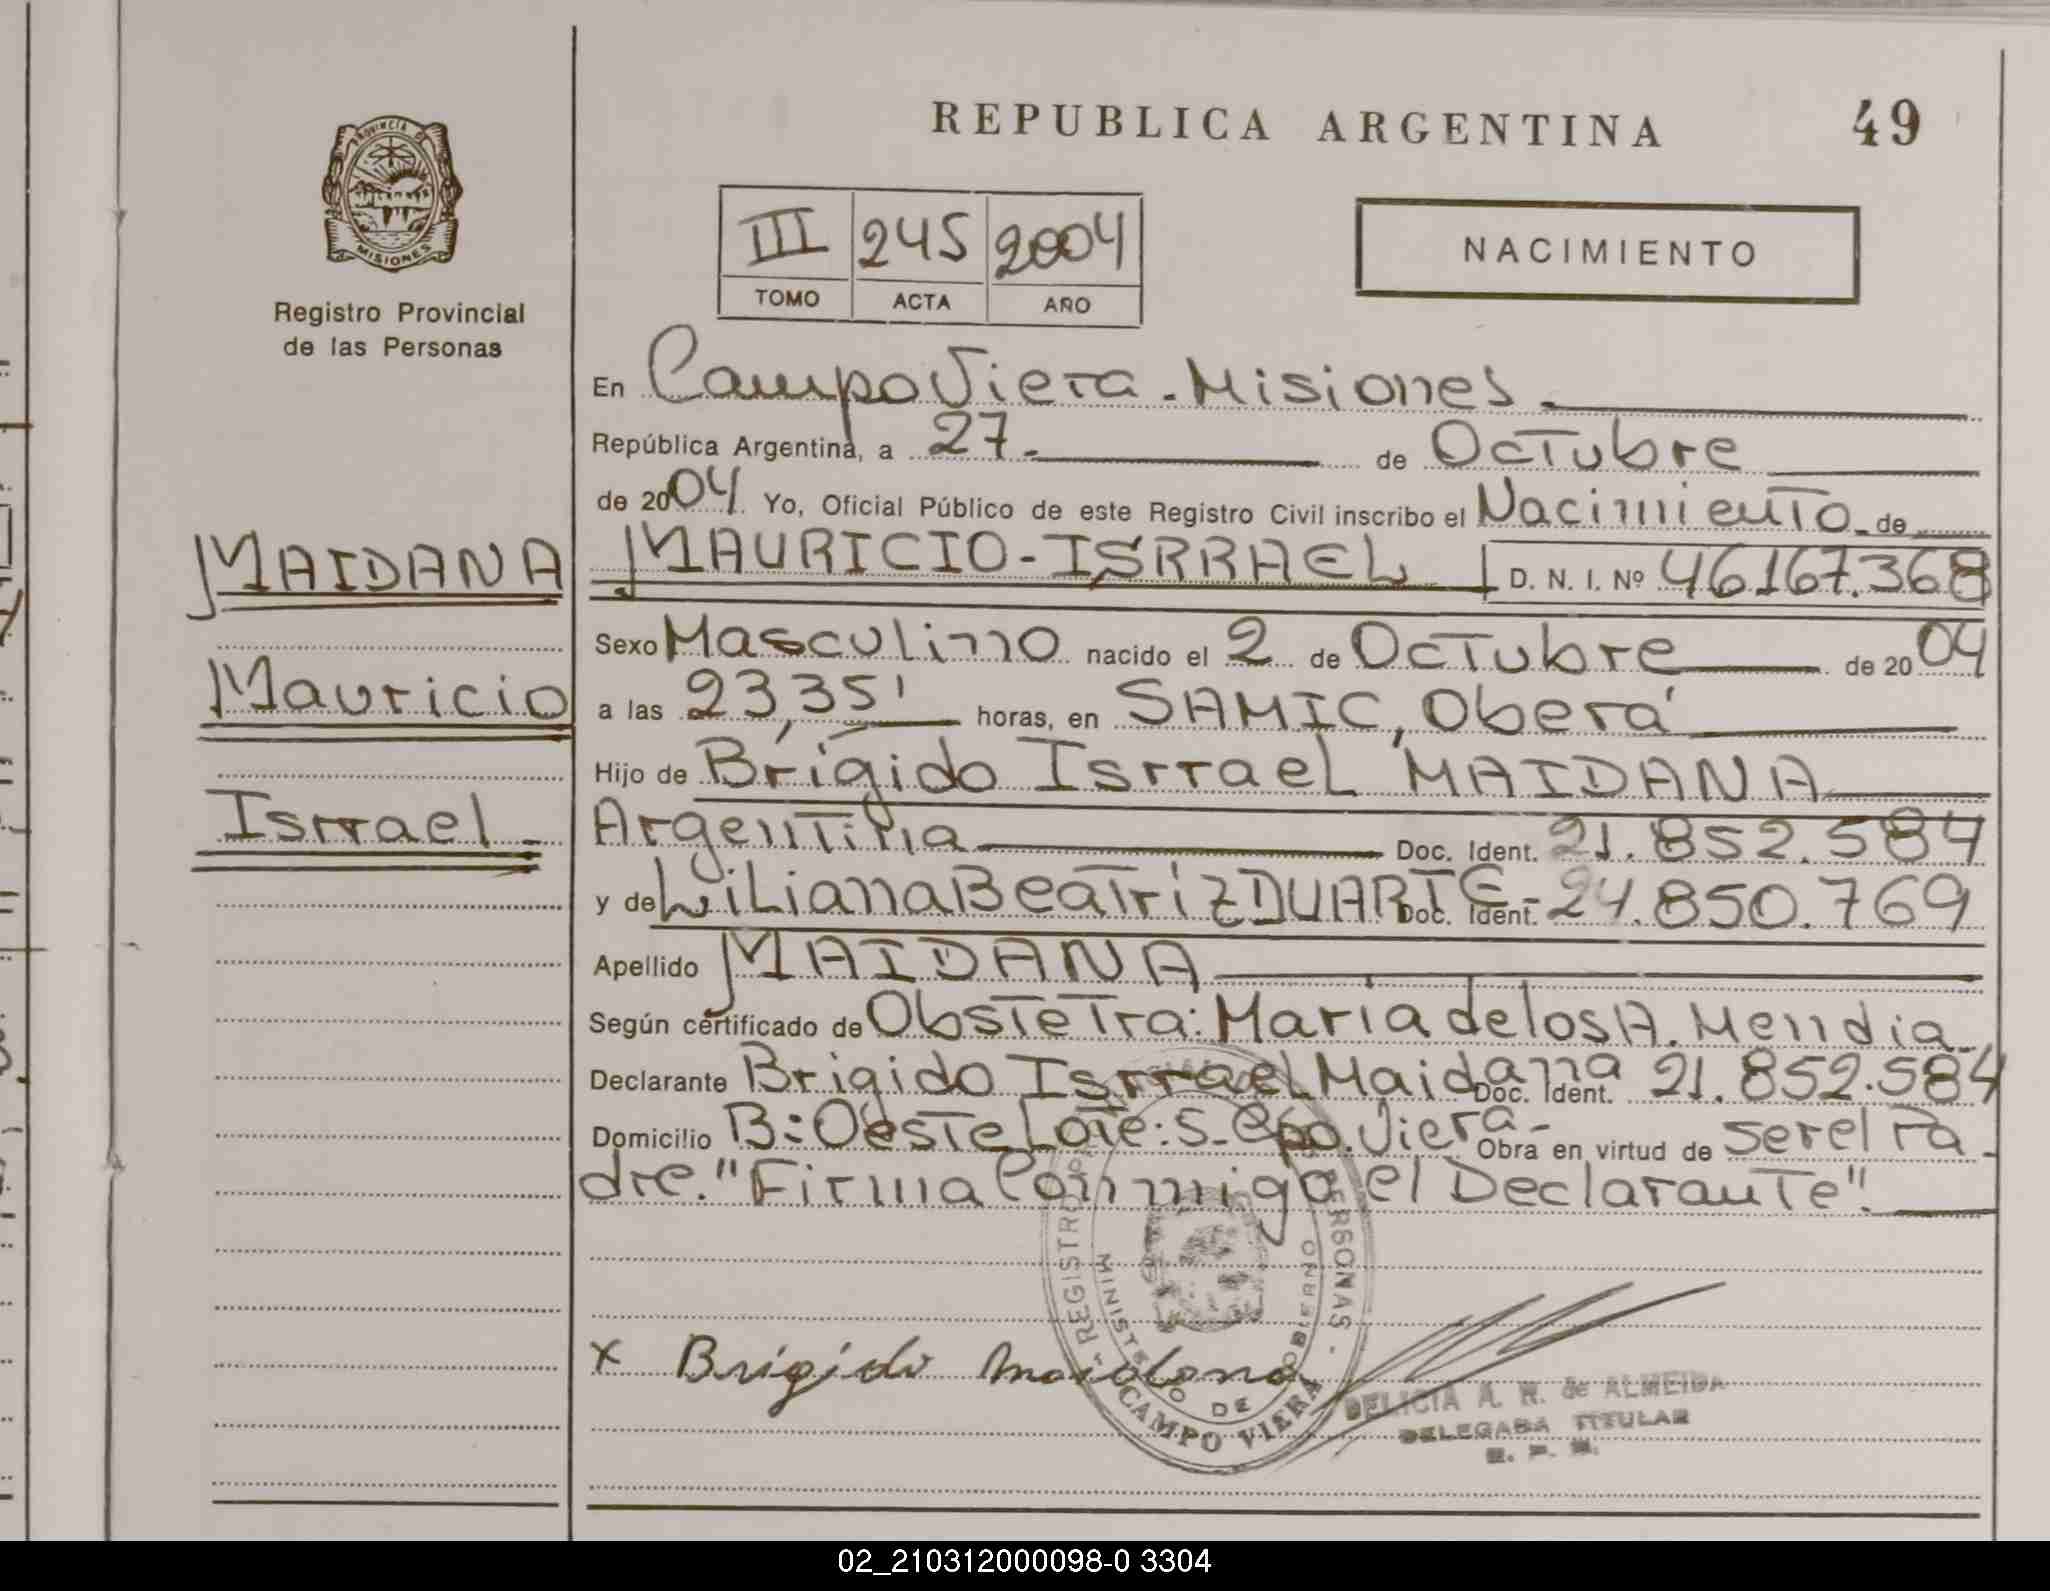 REPUBLICA ARGENTINA
49
PROVINCIA DE
MISIONES
Registro Provincial
de las Personas
III 245 2004
TOMO ACTA AÑO
NACIMIENTO
En Campo Viera - Misiones
República Argentina, a 27 de Octubre
de 2004 Yo, Oficial Público de este Registro Civil inscribo el Nacimiento de
MAIDANA
Mauricio
Isrrael
MAURICIO - ISRRAEL D. N. I. Nº 46.167.368
Sexo Masculino nacido el 2 de Octubre de 2004
a las 23,35' horas, en SAMIC, Oberá
Hijo de Brígido Isrrael MAIDANA
Argentina Doc. Ident. 21.852.584
y de Liliana Beatriz DUARTE - Doc. Ident. 24.850.769
Apellido MAIDANA
Según certificado de Obstetra: María de los A. Mendia
Declarante Brigido Isrrael Maidana Doc. Ident. 21.852.584
Domicilio B: Oeste Lote: S - Cpo. Viera - Obra en virtud de ser el Pa
dre. "Firma Conmigo el Declarante".
x Brígido Maidana
REGISTRO PERSONAS -
MINISTERIO DE GOBIERNO
CAMPO VIERA
DELICIA A. R. de ALMEIDA
DELEGADA TITULAR
R. P. P.
02_210312000098-0 3304